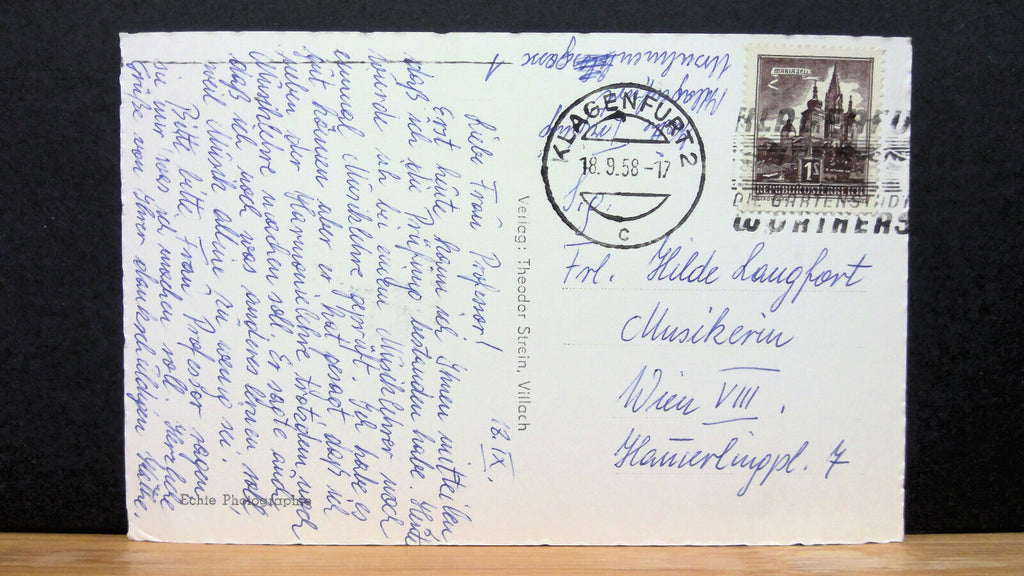 18. IX.
Liebe Frau Professor!
Erst heute kann ich Ihnen mitteilen
daß ich die Prüfung bestanden habe. Heute
wurde ich bei einem Musiklehrer noch
einmal Musiklehre geprüft. Ich habe es
gut können aber er hat gesagt daß ich
neben der Harmonielehre trotzdem noch
Musiklehre machen soll. Er sagte auch
daß ich noch was anderes lernen soll
weil Musik allein zu wenig sei.
Bitte, bitte, Frau Professor sagen
Sie mir was ich machen soll. Herzliche
Grüße von Ihrer dankschuldigen
Echte Photographie
Verlag: Theodor Strein, Villach
KLAGENFURT 2
18.9.58-17
c
MARIAZELL
1S
DIE GARTENSTADT
WÖRTHERS
Frl. Hilde Langfort
Musikerin
Wien VIII.
Hamerlingpl. 7